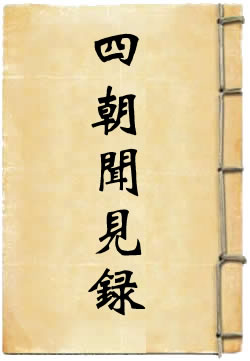 四朝聞見録